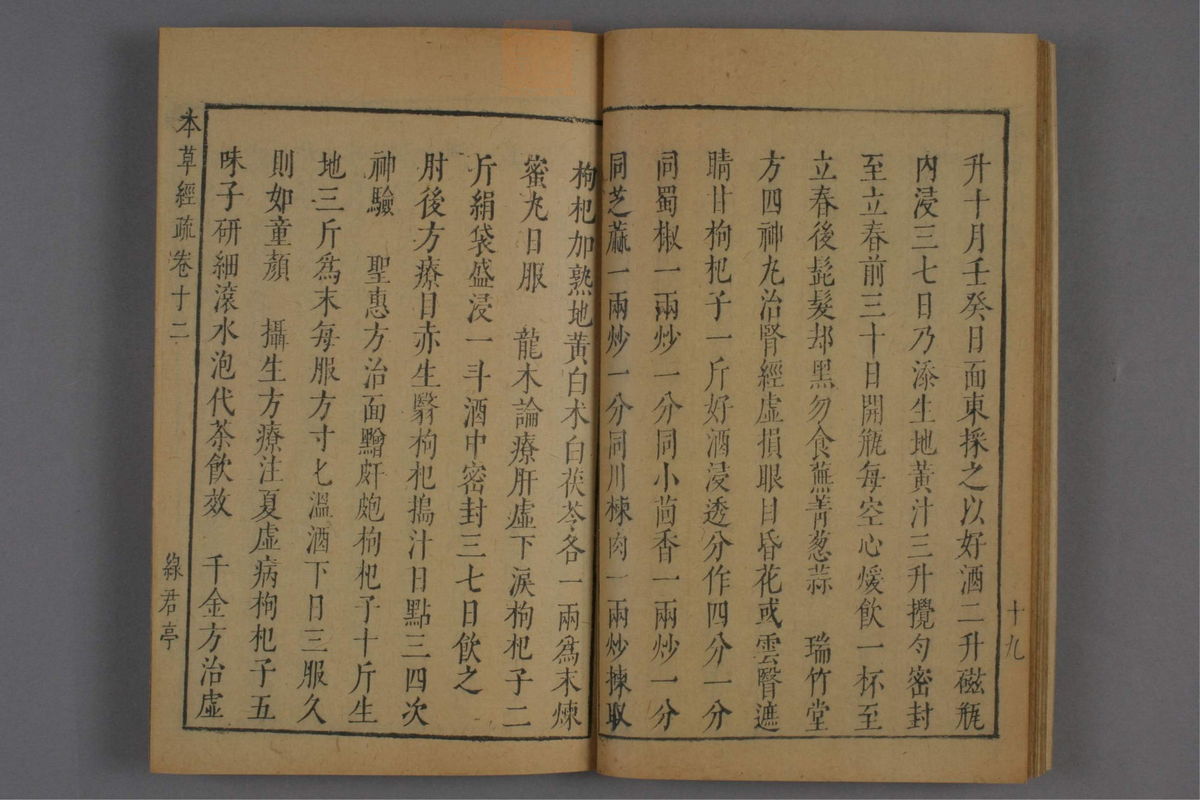 十九
升十月壬癸日面東採之以好酒二升磁瓶
內浸三七日乃添生地黃汁三升攪勻密封
至立春前三十日開瓶每空心煖飲一杯至
立春後髭髮却黑勿食蕪菁葱蒜　瑞竹堂
方四神丸治腎經虛損眼目昏花或雲瞖遮
睛甘枸杞子一斤好酒浸透分作四分一分
同蜀椒一兩炒一分同小茴香一兩炒一分
同芝蔴一兩炒一分同川楝肉一兩炒揀取
枸杞加熟地黃白术白茯苓各一兩爲末煉
蜜丸日服　龍木論療肝虛下淚枸杞子二
斤絹袋盛浸一斗酒中密封三七日飲之
肘後方療目赤生翳枸杞搗汁日點三四次
神驗　聖惠方治面䵟皯皰枸杞子十斤生
地三斤爲末每服方寸匕溫酒下日三服久
則如童顏　攝生方療注夏虛病枸杞子五
味子研細滾水泡代茶飲效　千金方治虛
本草經疏卷十二
綠君亭